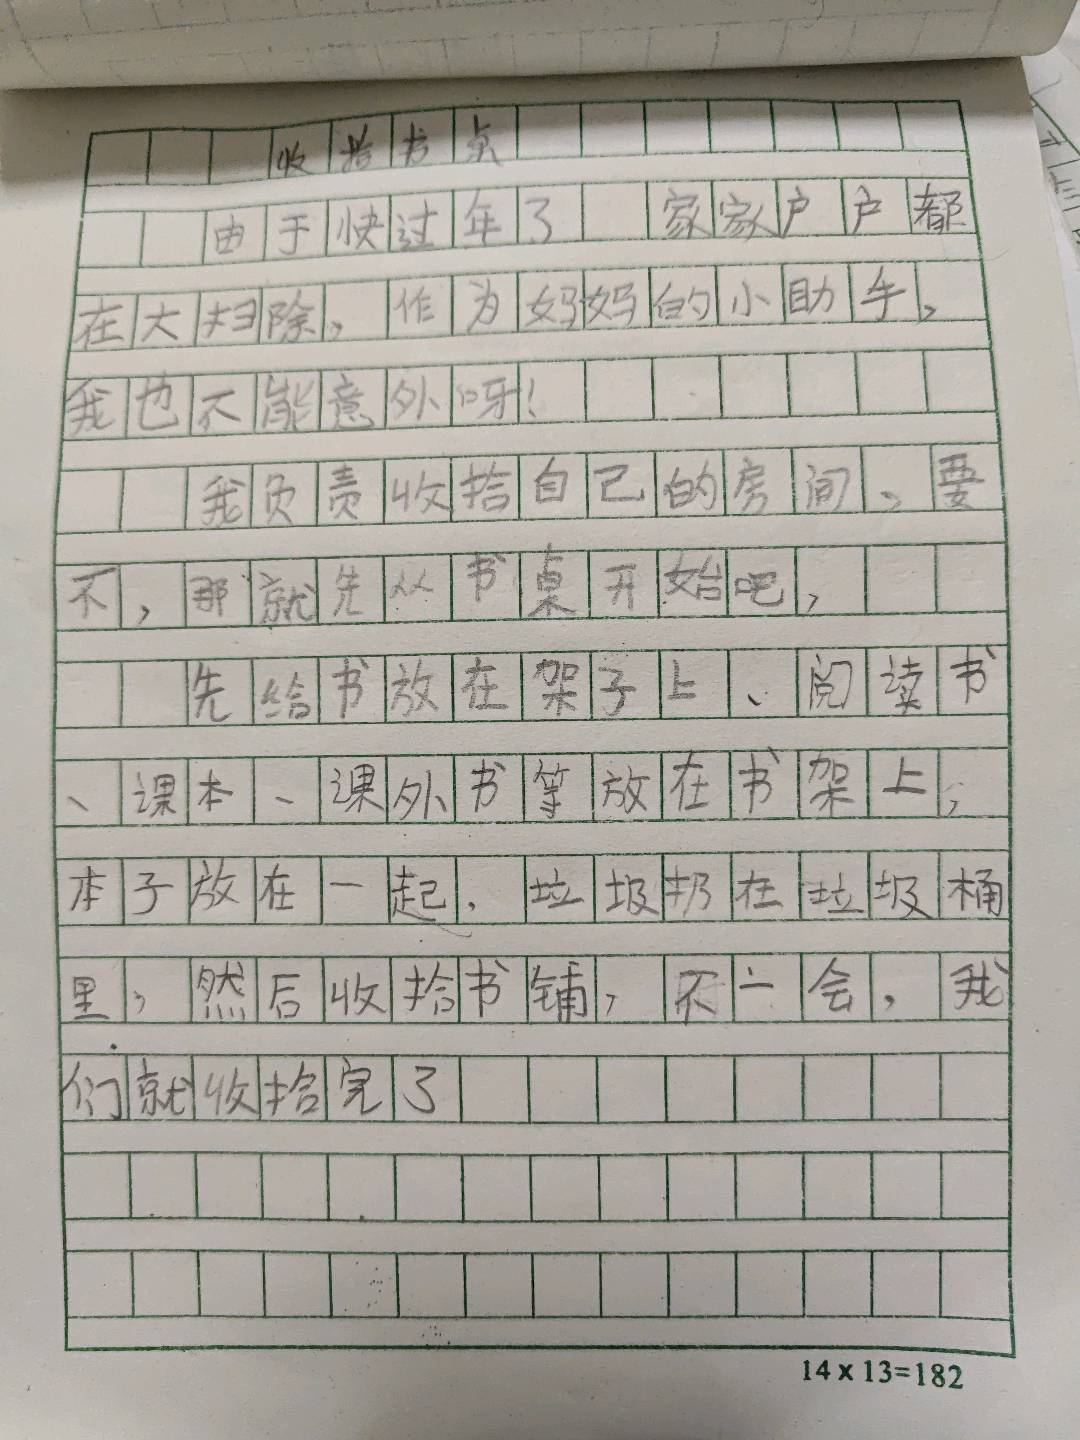 收拾书桌
由于快过年了 家家户户都
在大扫除，作为妈妈的小助手，
我也不能意外呀！
我负责收拾自己的房间、要
不，那就先从书桌开始吧，
先给书放在架子上、阅读书
、课本、课外书等放在书架上，
本子放在一起．垃圾扔在垃圾桶
里，然后收拾书铺，不一会，我
们就收拾完了
14×13=182